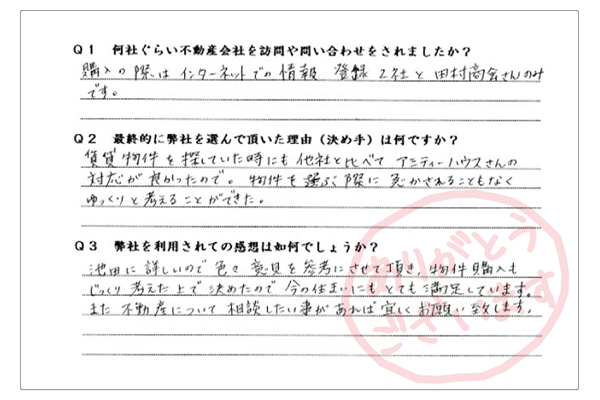 Q1 何社ぐらい不動産会社を訪問や問い合わせをされましたか?
購入の際はインターネットでの情報 登録 2社と 田村商会さんのみ
です。
Q2 最終的に弊社を選んで頂いた理由(決め手)は何ですか?
賃貸物件を探していた時にも他社と比べて アミティーハウスさんの
対応が良かったので。物件を選ぶ際に 急かされることもなく
ゆっくりと考えることができた。
Q3 弊社を利用されての感想は如何でしょうか?
池田に詳しいので色々意見を参考にさせて頂き、物件購入も
じっくり考えた上で決めたので今の住まいにもとても満足しています。
また不動産について相談したい事があれば宜しくお願い致します。
ありがとう
ございます